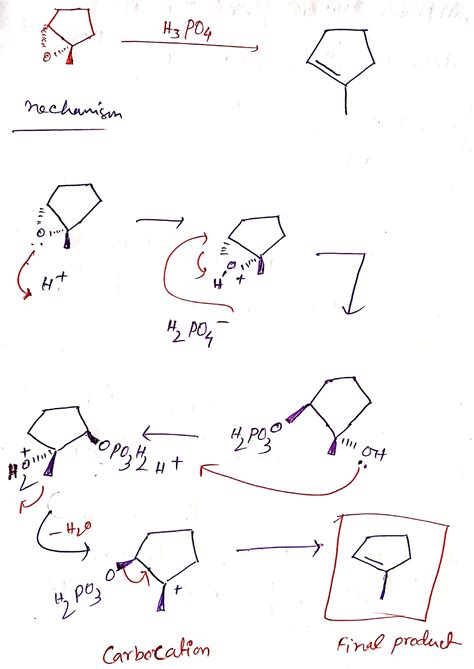 H3PO4
O
mechanism
O
H+
O
H +
H2PO4-
H2PO3 O
OH
+
H2O
OPO3H2
H+
-H2O
O
H2PO3
+
Carbocation
Final product